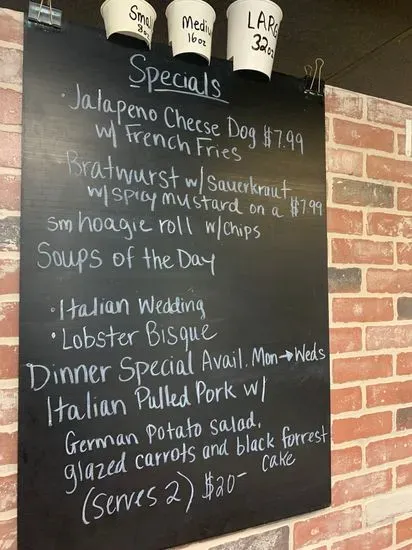 Small
8oz
Medi
16oz
LARG
32oz
Specials
· Jalapeno Cheese Dog $7.99
w/ French Fries
Bratwurst w/ Sauerkraut
w/ spicy mustard on a $7.99
sm hoagie roll w/chips
Soups of the Day
· Italian Wedding
· Lobster Bisque
Dinner Special Avail. Mon → Weds
Italian Pulled Pork w/
German Potato salad,
glazed carrots and black forrest
cake
(serves 2) $20-